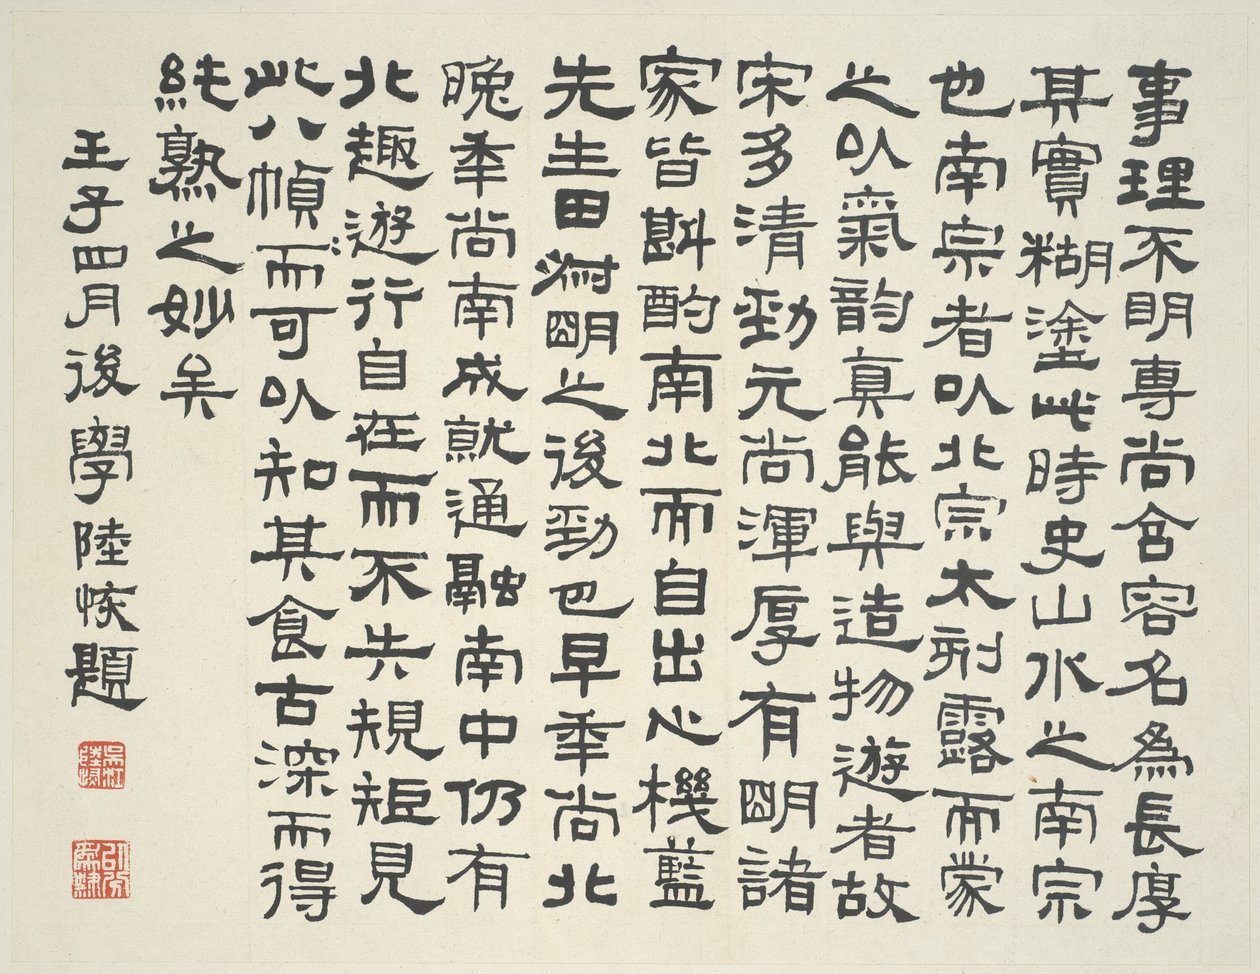 事理不明專尚含容名為長厚
其實糊塗此時史山水之南宗
也南宗者以北宗太刻露而蒙
之以氣韵真能與造物遊者故
宋多清勁元尚渾厚有明諸
家皆斟酌南北而自出心機藍
先生田叔明之後勁也早年尚北
晚年尚南成就通融南中仍有
北趣遊行自在而不失規矩見
此八幀而可以知其食古深而得
純熟之妙矣
壬子四月後學陸恢題
吳江陸恢